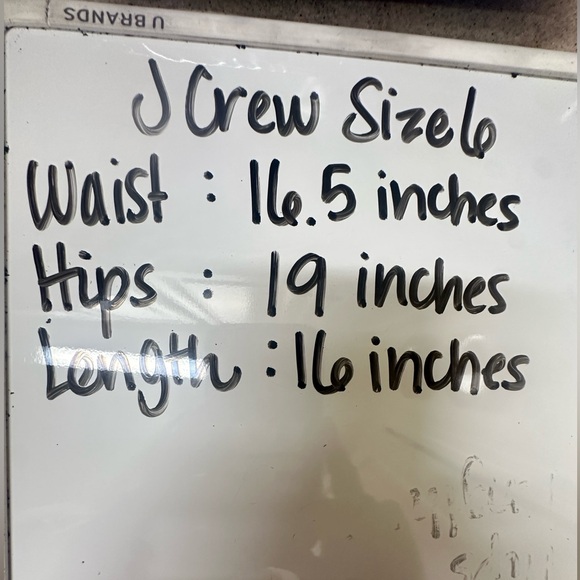 U BRANDS
J Crew Size 6
Waist : 16.5 inches
Hips : 19 inches
Length : 16 inches